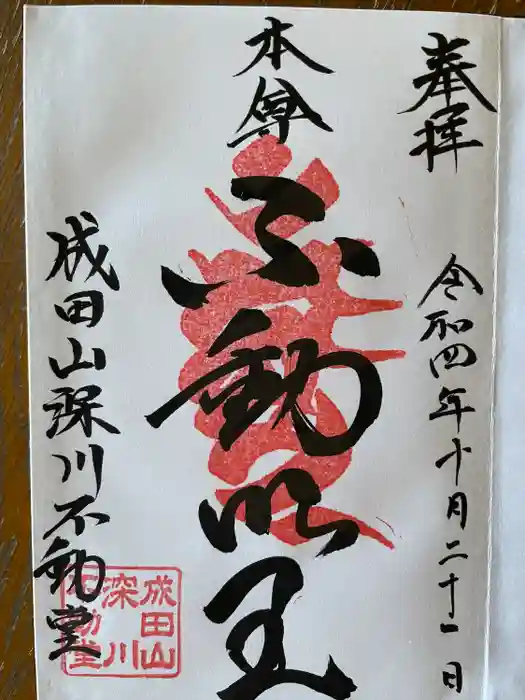 奉拝
令和四年十月二十一日
本尊
不動明王
成田山深川不動堂
成田山
深川
不動堂